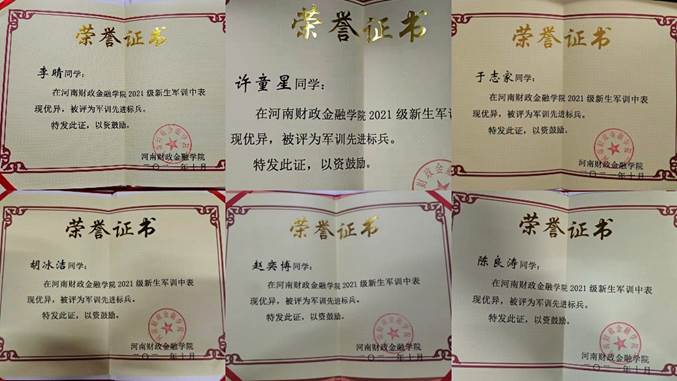 荣誉证书
李晴同学：
在河南财政金融学院2021级新生军训中表
现优异，被评为军训先进标兵。
特发此证，以资鼓励。
河南财政金融学院
二〇二一年十月
荣誉证书
许童星同学：
在河南财政金融学院2021级新生军训
现优异，被评为军训先进标兵。
特发此证，以资鼓励。
荣誉证书
于志家同学：
在河南财政金融学院2021级新生军训中表
现优异，被评为军训先进标兵。
特发此证，以资鼓励。
河南财政金融学院
二〇二一年十月
荣誉证书
胡冰洁同学：
在河南财政金融学院2021级新生军训中表
现优异，被评为军训先进标兵。
特发此证，以资鼓励。
河南财政金融学院
二〇二一年十月
荣誉证书
赵奕博同学：
在河南财政金融学院2021级新生军训中表
现优异，被评为军训先进标兵。
特发此证，以资鼓励。
河南财政金融学院
二〇二一年十月
荣誉证书
陈良涛同学：
在河南财政金融学院2021级新生军训中表
现优异，被评为军训先进标兵。
特发此证，以资鼓励。
河南财政金融学院
二〇二一年十月